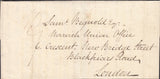 Saml Bignold Esqr
Norwich Union Office
6 Crescent, New Bridge Street
Blackfriars Road
London